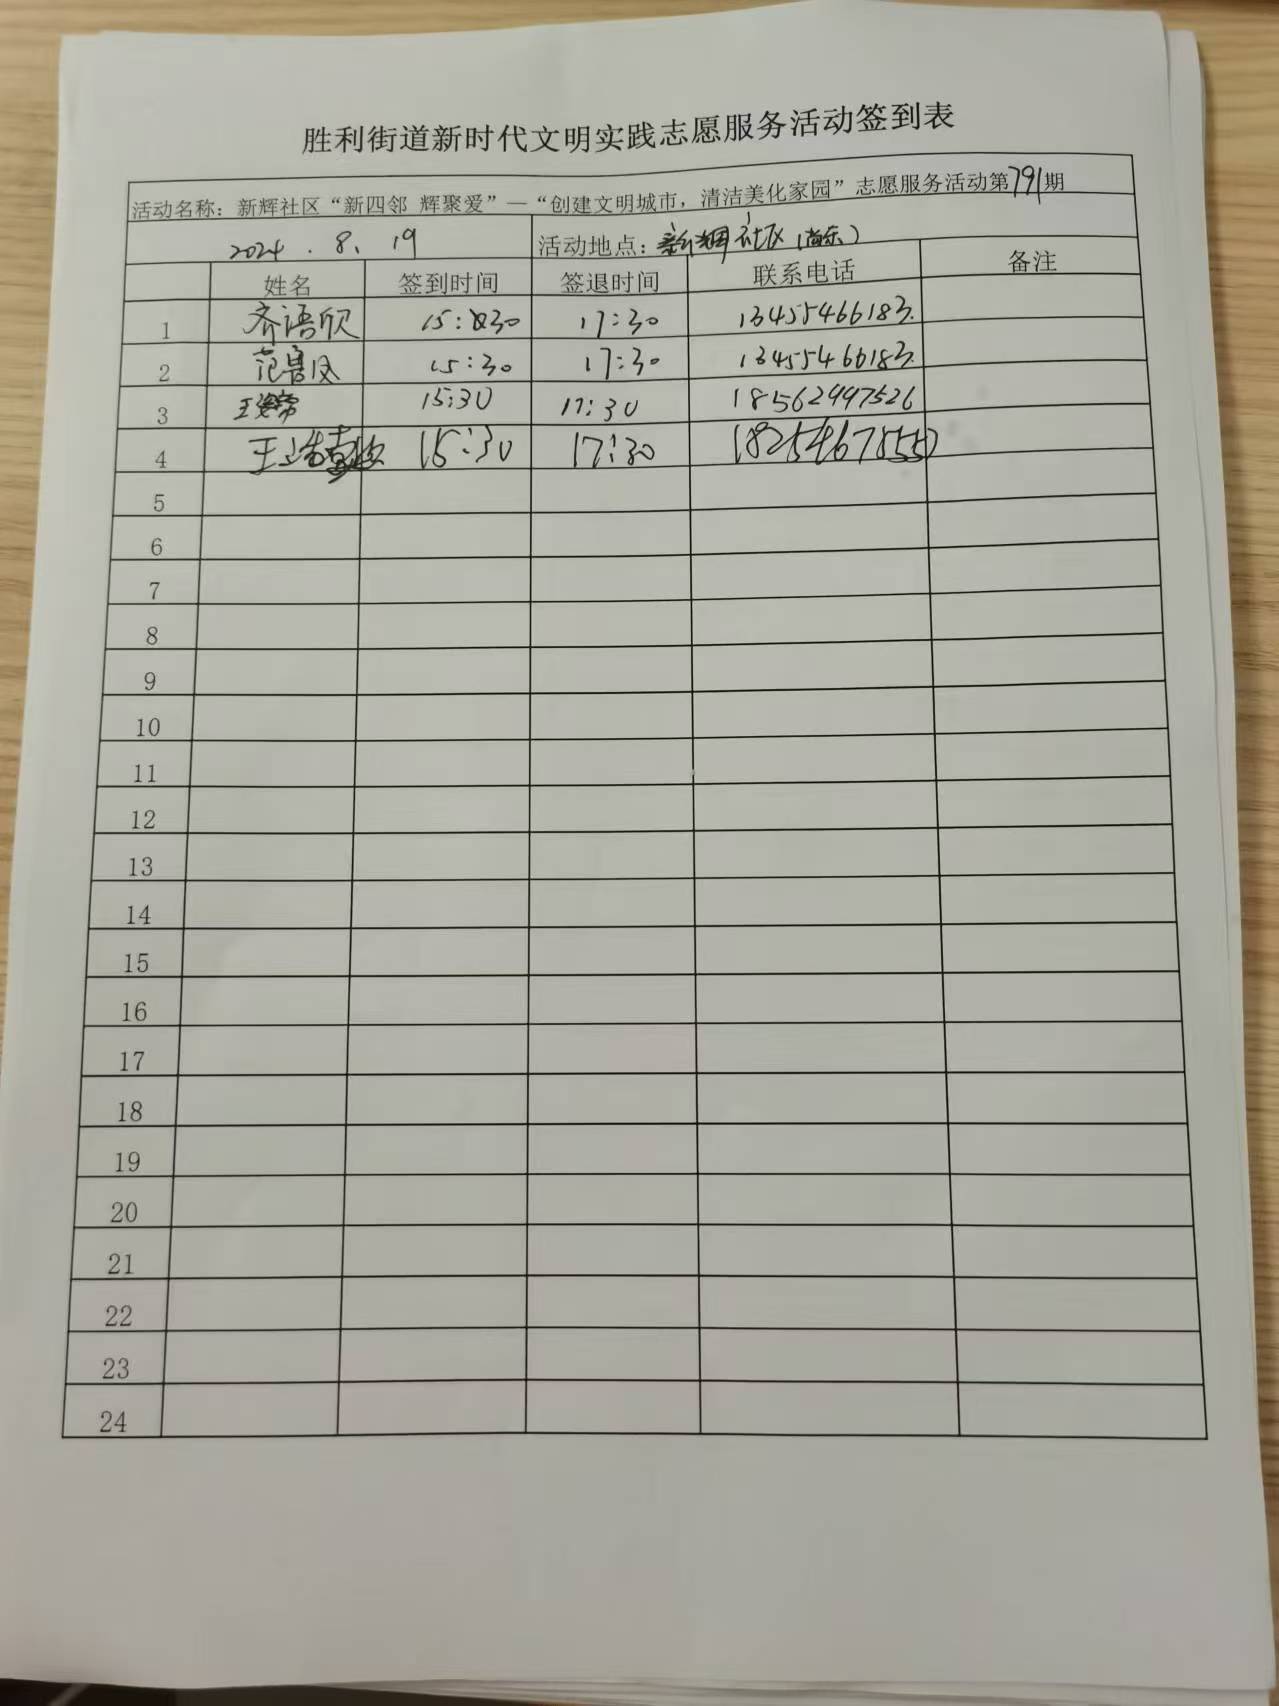 胜利街道新时代文明实践志愿服务活动签到表
活动名称：新辉社区“新四邻 辉聚爱”—“创建文明城市，清洁美化家园”志愿服务活动第791期
2024.8.19 活动地点：新辉社区(尚东)
姓名 签到时间 签退时间 联系电话 备注
1 齐语欣 15:30 17:30 13455466183
2 范鲁凤 15:30 17:30 13455466183
3 15:30 17:30 18562997526
4 15:30 17:30
5
6
7
8
9
10
11
12
13
14
15
16
17
18
19
20
21
22
23
24